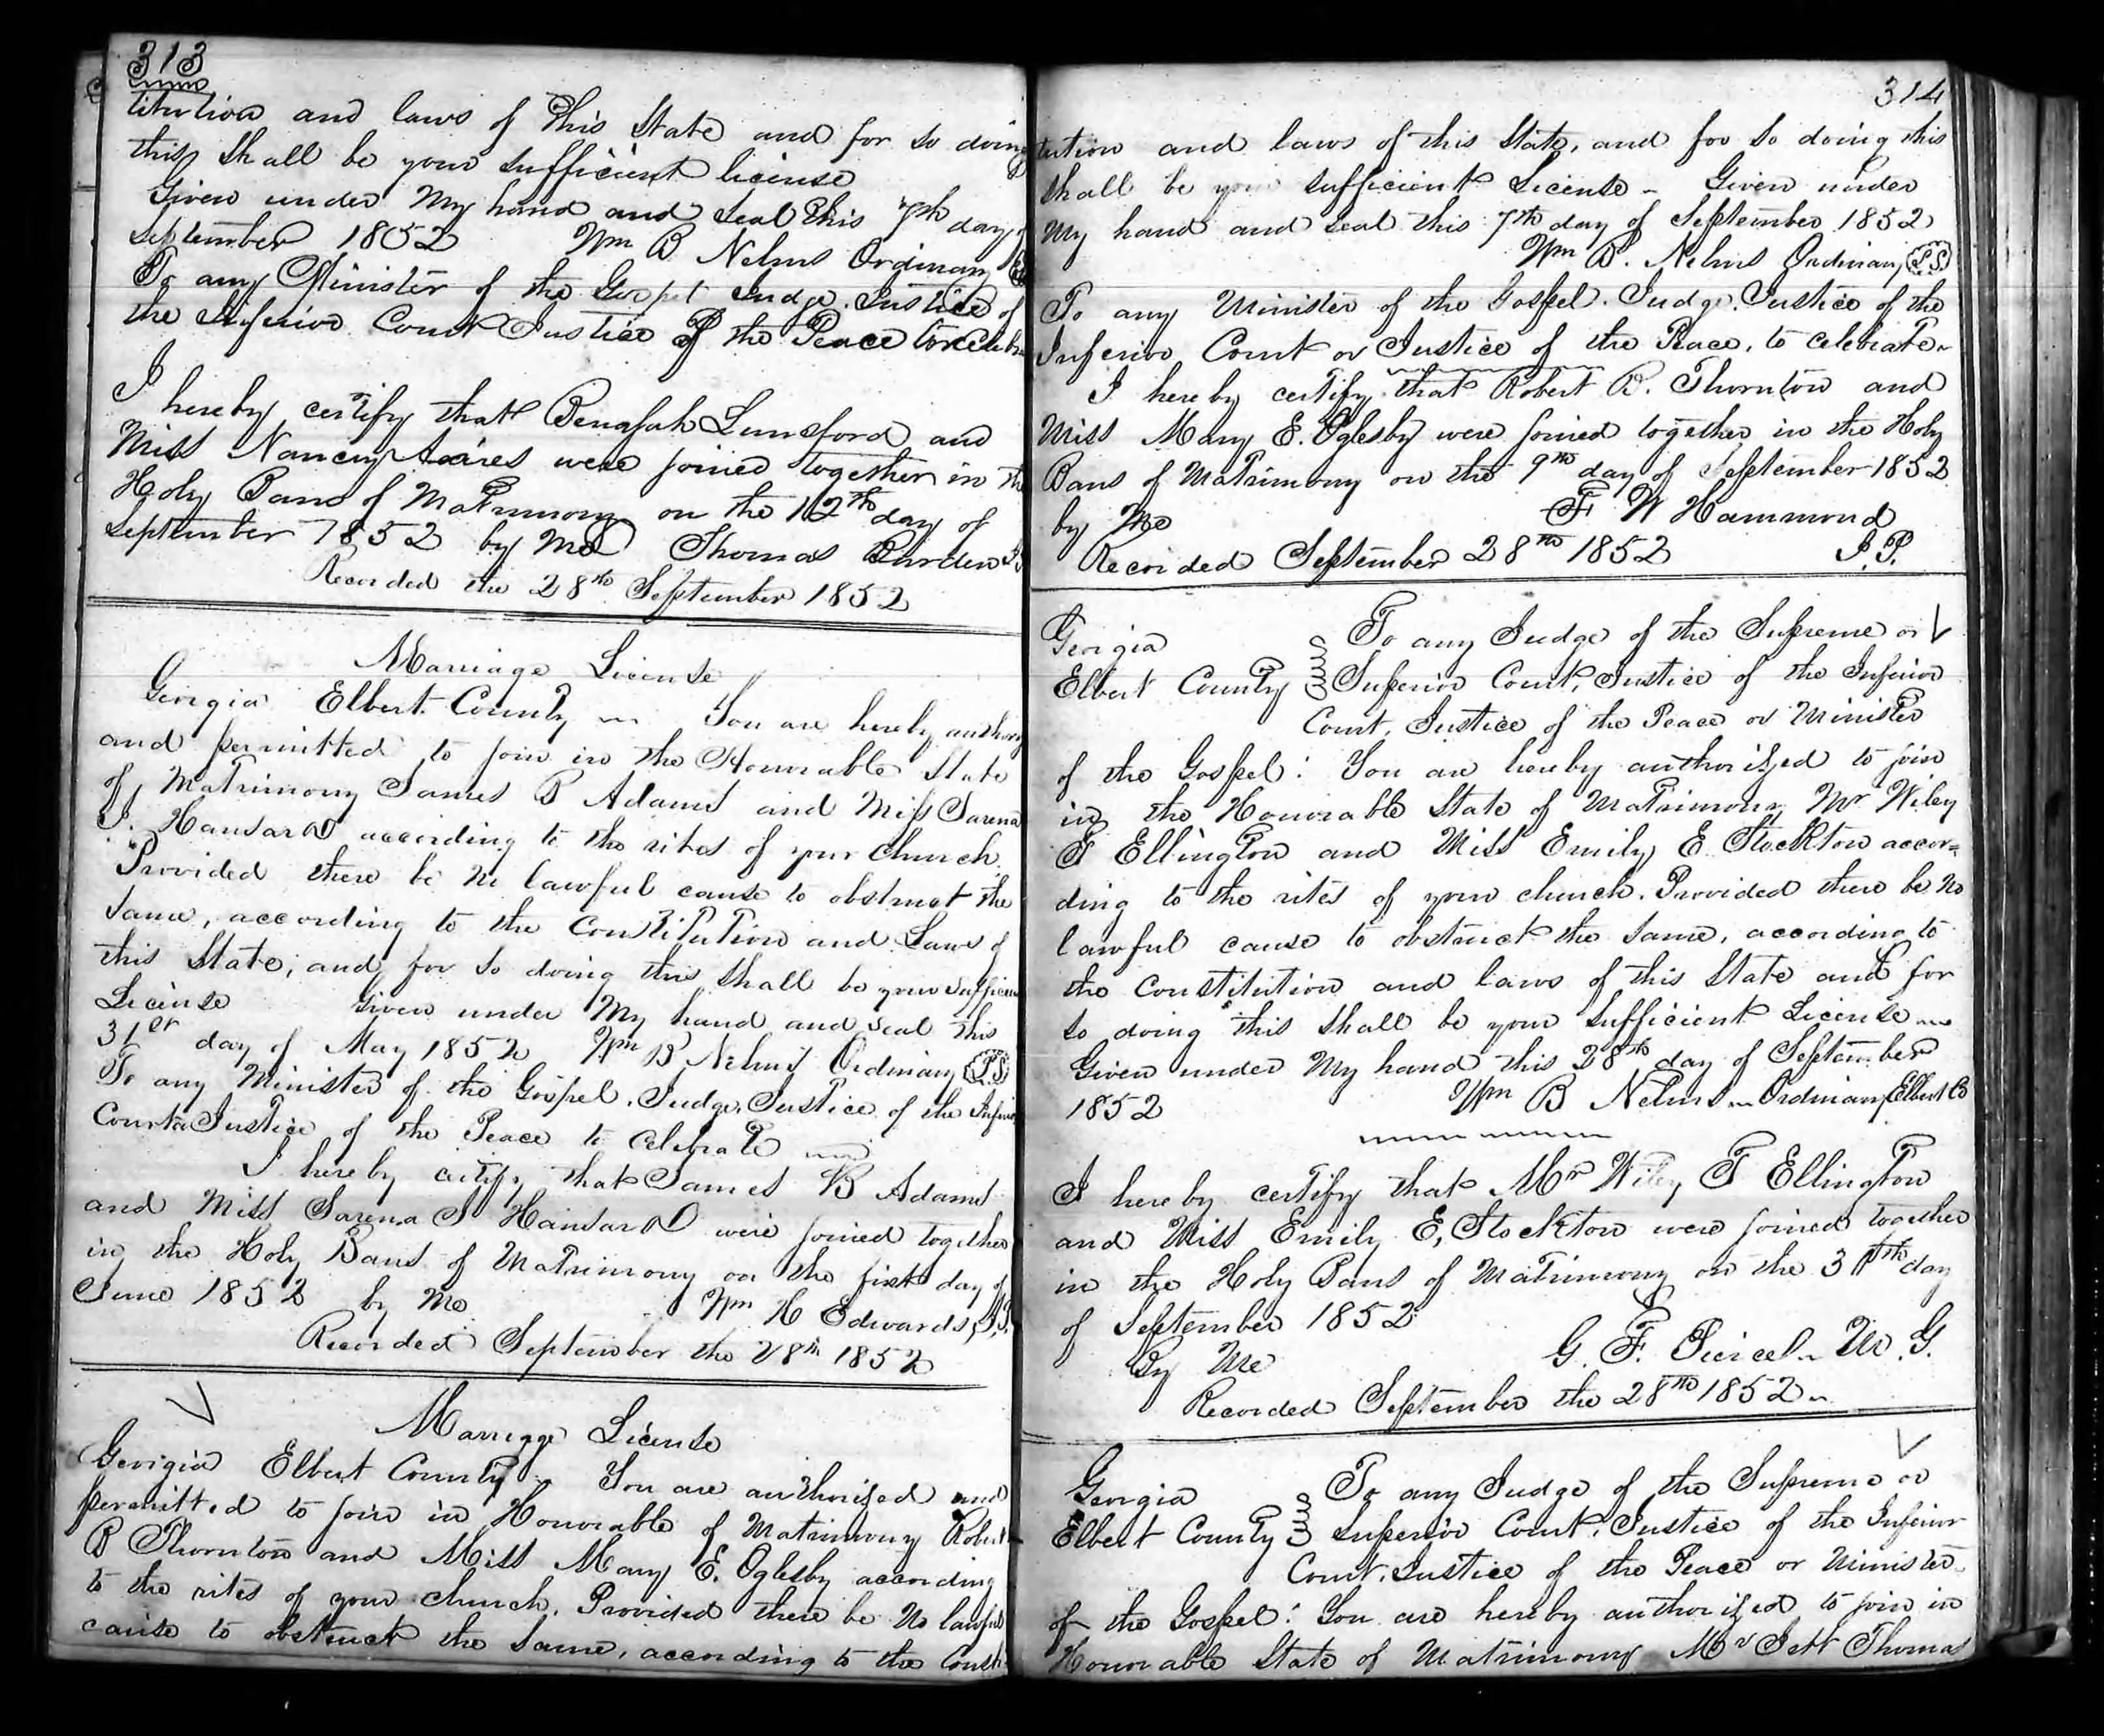 313
titution and laws of this State and for so doing
this shall be your sufficient license
Given under My hand and Seal this 7th day of
September 1852 Wm B Nelms Ordinary
To any Minister of the Gospel Judge, Justice of
the Inferior Court Justice of the Peace to celebra
I hereby certify that Benajah Lunsford and
Miss Nancy were joined together in the
Holy Bans of Matrimony on the 12th day of
September 1852 by Me Thomas Burden
Recorded the 28th September 1852
Marriage License
Georgia Elbert County You are hereby author
and permitted to join in the Honorable State
of Matrimony James B Adams and Miss Sarena
S. Hansard according to the rites of your church.
Provided there be no lawful cause to obstruct the
same, according to the Constitution and Laws of
this State, and for so doing this shall be your suffici
License Given under My hand and Seal this
31st day of May 1852 Wm B Nelms Ordinary L.S.
To any Minister of the Gospel, Judge, Justice of the Inferio
Court or Justice of the Peace to celebrate
I hereby certify that James B Adams
and Miss Sarena S Hansard were joined together
in the Holy Bans of Matrimony on the first day of
June 1852 by Me Wm H Edwards J.P.
Recorded September the 28th 1852
Marriage License
Georgia Elbert County You are authorised and
permitted to join in Honorable of Matrimony Robert
B Thornton and Miss Mary E. Oglesby according
to the rites of your church. Provided there be No lawful
cause to obstruct the same, according to the Consti
314
tution and laws of this State, and for so doing this
shall be your sufficient License - Given under
My hand and Seal this 7th day of September 1852
Wm B. Nelms Ordinary L.S.
To any Minister of the Gospel. Judge. Justice of the
Inferior Court or Justice of the Peace, to celebrate
I hereby certify that Robert B. Thornton and
Miss Mary E. Oglesby were joined together in the Holy
Bans of Matrimony on the 9th day of September 1852
by Me F W Hammond
Recorded September 28th 1852 J.P.
Georgia To any Judge of the Supreme or
Elbert County Superior Court, Justice of the Inferior
Court, Justice of the Peace or Minister
of the Gospel: You are hereby authorized to join
in the Honorable State of Matrimony Mr Wiley
T Ellington and Miss Emily E Stockton accor=
ding to the rites of your church. Provided there be no
lawful cause to obstruct the same, according to
the Constitution and laws of this State and for
so doing this shall be your sufficient License
Given under My hand this 28th day of September
1852 Wm B Nelms Ordinary Elbert Co
I hereby certify that Mr Wiley T Ellington
and Miss Emily E, Stockton were joined together
in the Holy Bans of Matrimony on the day
of September 1852
By Me G. F. Pierce M.G.
Recorded September the 28th 1852
Georgia To any Judge of the Supreme or
Elbert County Superior Court, Justice of the Inferior
Court, Justice of the Peace or Minister
of the Gospel: You are hereby authorized to join in
Honorable State of Matrimony Mr Jett Thomas